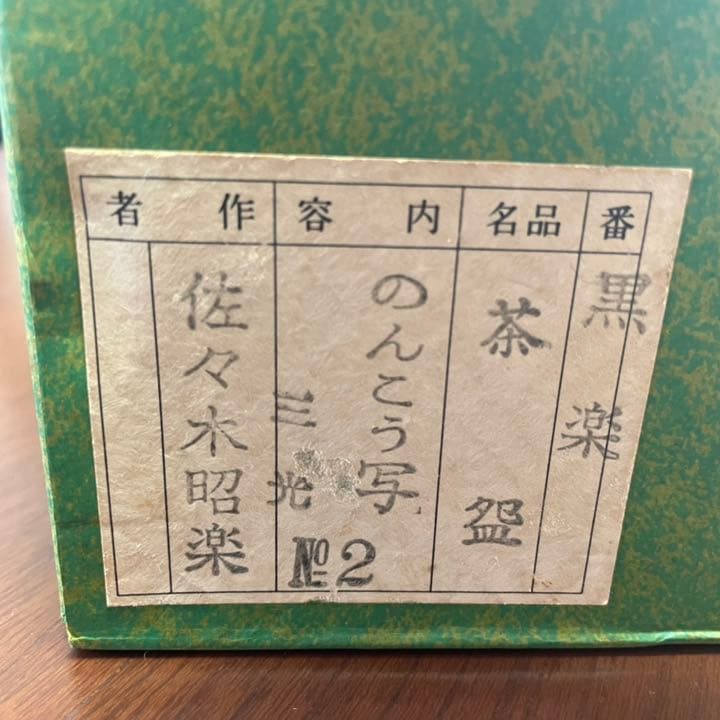 番
品名
内容
作者
黒楽
茶盌
のんこう写
三光
№2
佐々木昭楽